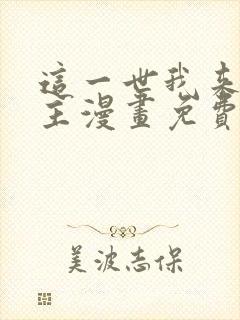 這一世我來
主漫畫免費
美波志保